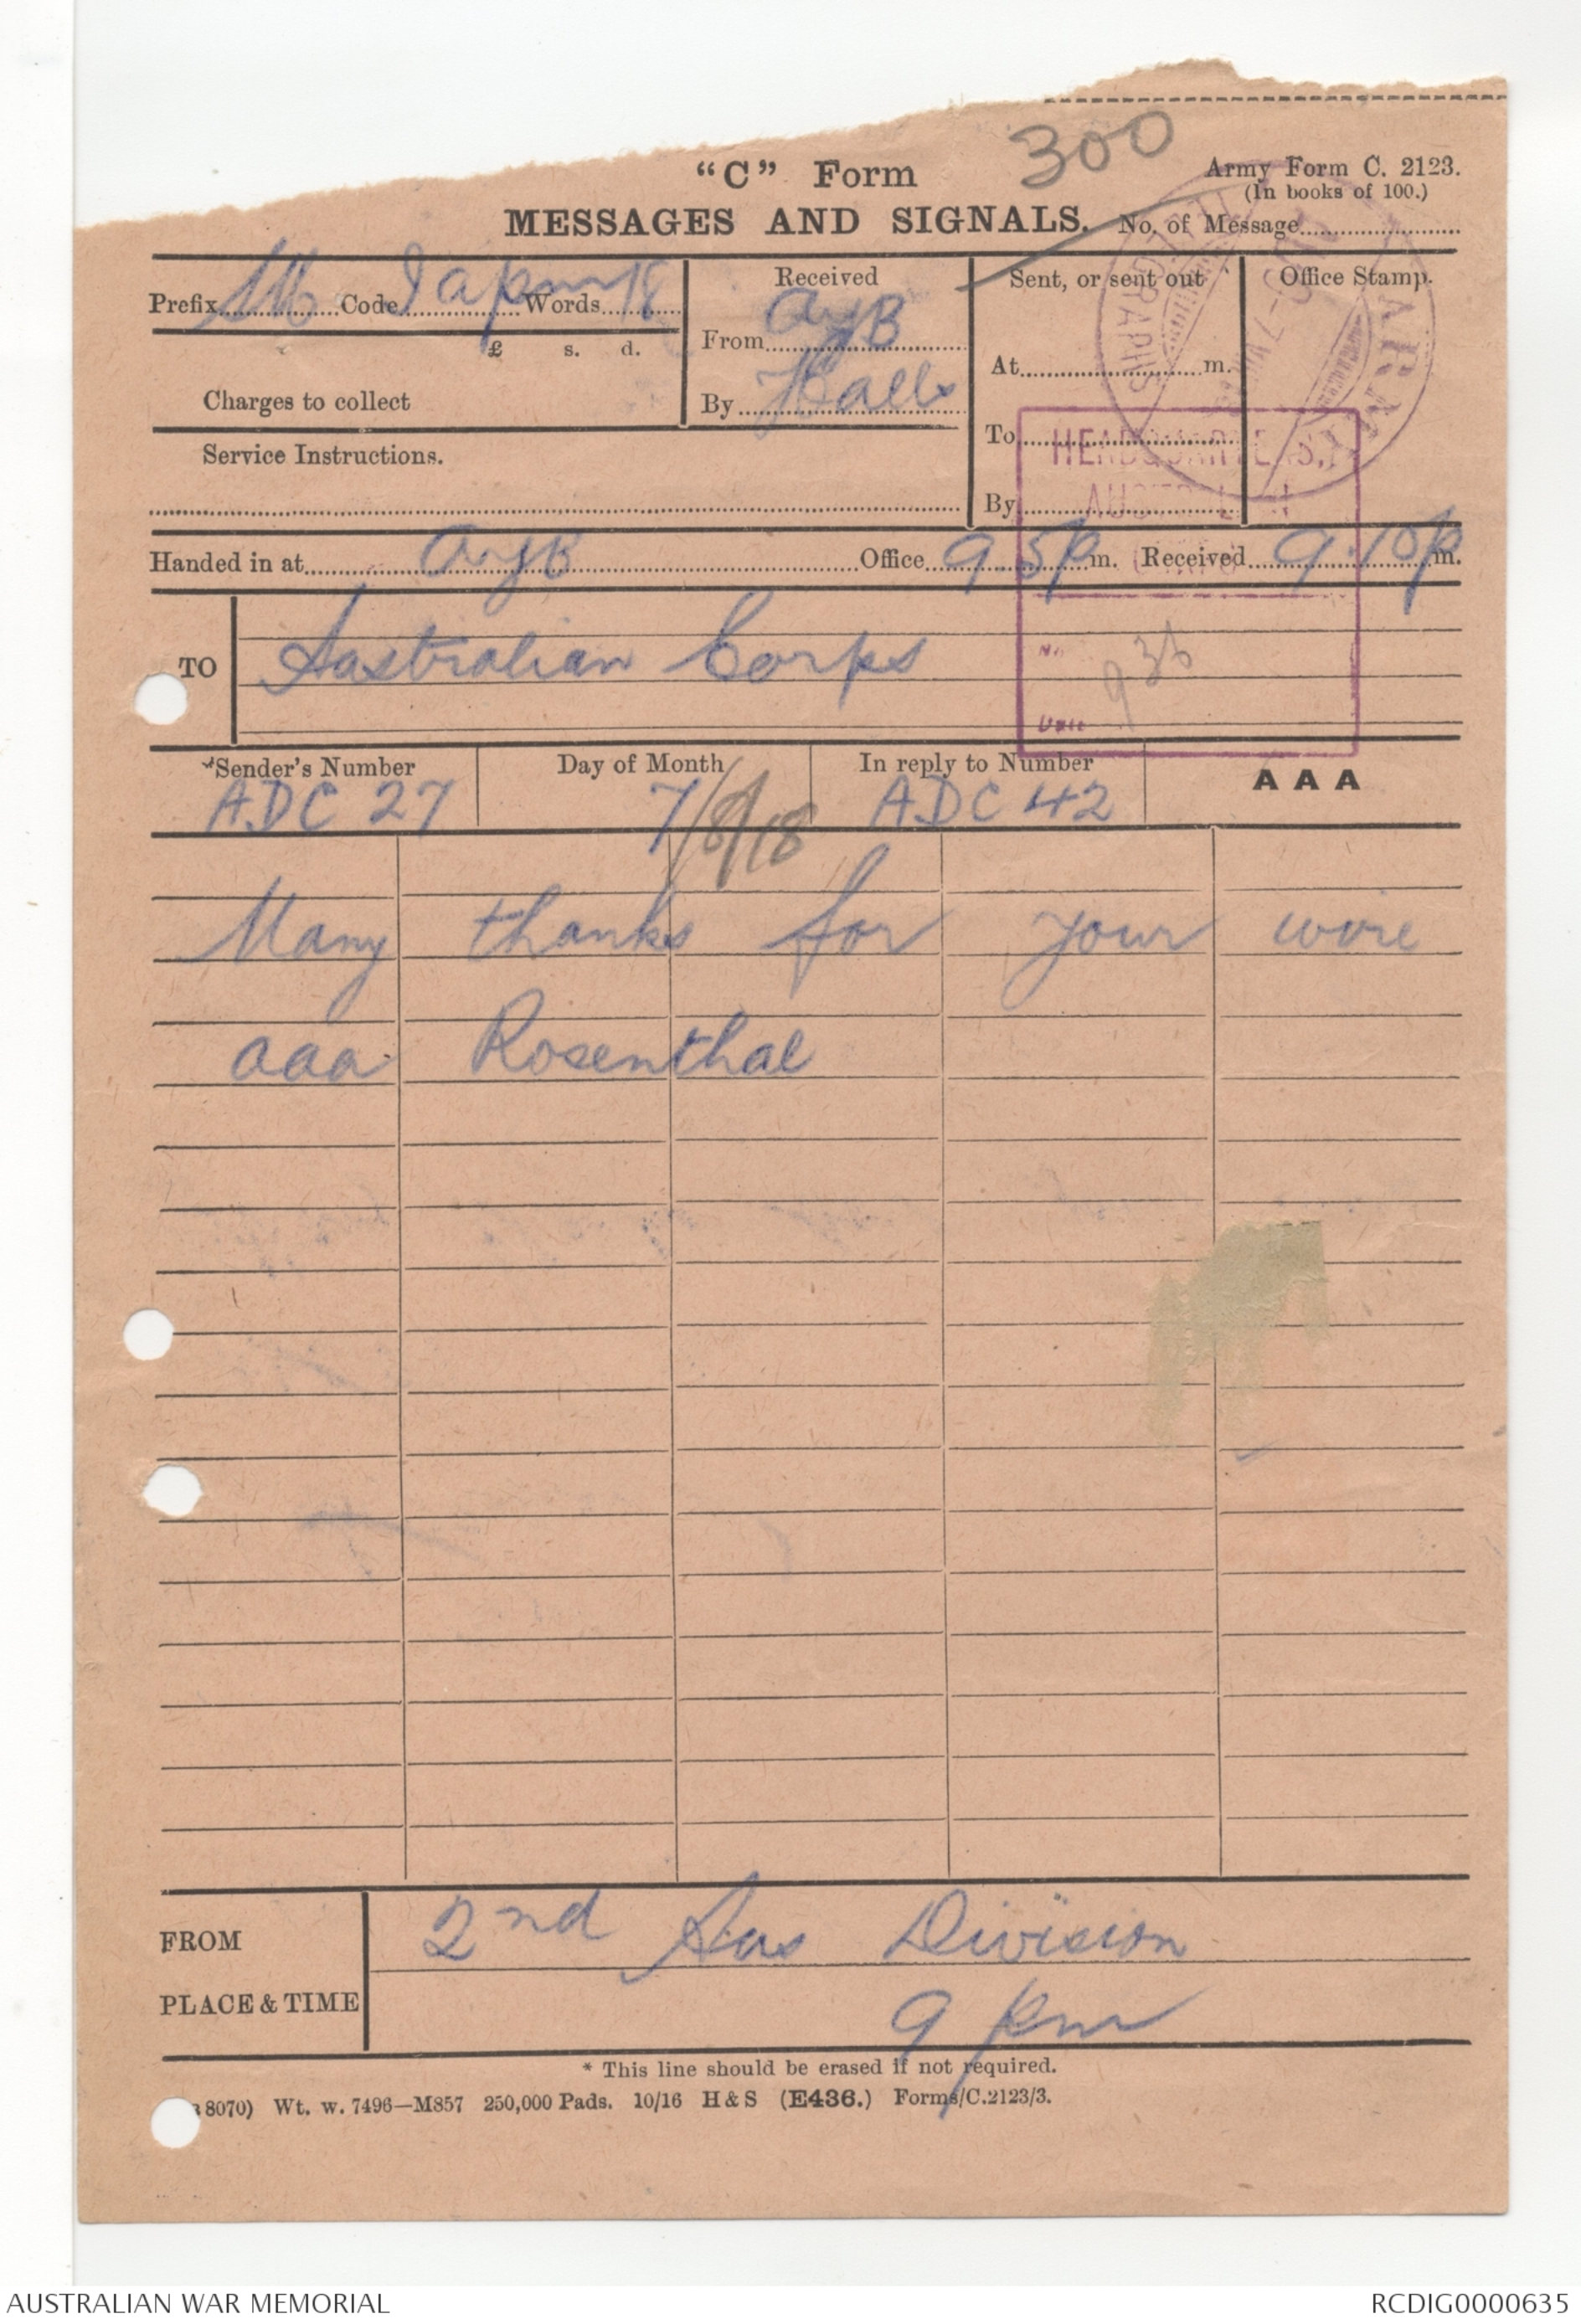 300
"C" Form
Army Form C. 2123.
(In books of 100.)
MESSAGES AND SIGNALS.
No. of Message
Prefix SB Code Words 18
£ s. d.
Charges to collect
Service Instructions.
Received
From AYB
By
Sent, or sent out
At m.
To
By
Office Stamp.
ARMY
TELEGRAPHS
HEADQUARTERS,
AUSTRALIAN
CORPS
No. 936
Date
Handed in at AYB Office 9.5p m. Received 9.10p m.
TO Australian Corps
Sender's Number Day of Month In reply to Number AAA
ADC 27 7/8/18 ADC 42
Many thanks for your wire
aaa Rosenthal
FROM 2nd Aus Division
PLACE & TIME 9 pm
* This line should be erased if not required.
8070) Wt. w. 7496—M857 250,000 Pads. 10/16 H & S (E436.) Forms/C.2123/3.
AUSTRALIAN WAR MEMORIAL
RCDIG0000635